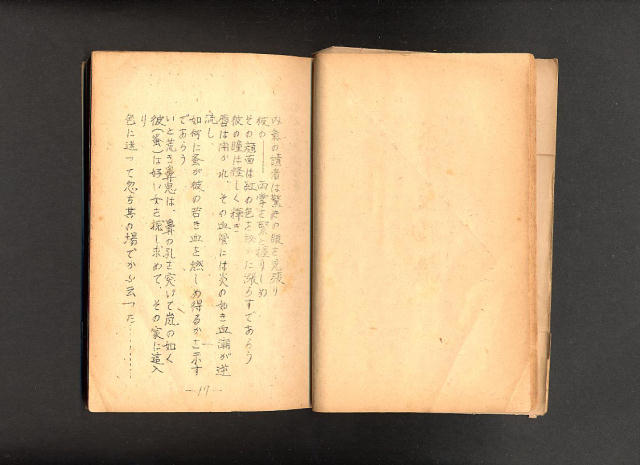 内気の讀者は驚きの眼を見張り
彼の―――両掌を堅く握りしめ
その顔面は紅の色を漲らすであらう
彼の瞳は怪しく輝き
唇は開かれ、その血管には炎の如き血潮が逆
流し、
如何に蚤が彼の若き血を燃しめ得るかを示す
であらう
いと荒き鼻息は、鼻の孔を突いて嵐の如く
彼(蚤)は好い女を探し求めて、その家に這入
り
色に迷って忽ち其の場でかぶ云った………
―17―